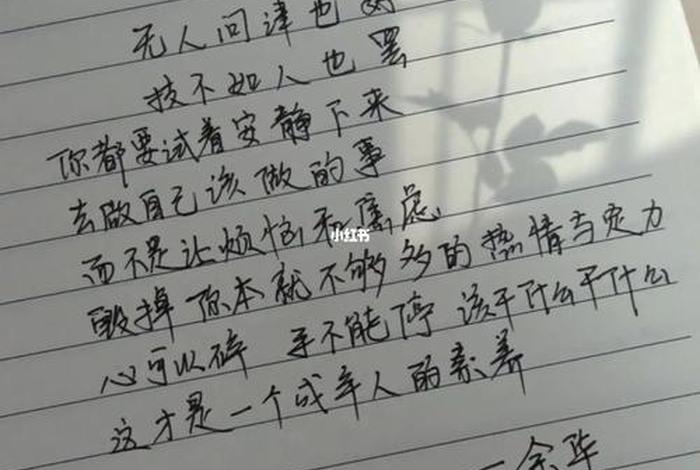 无人问津也好
技不如人也罢
你都要试着安静下来
去做自己该做的事
而不是让烦恼和焦虑
毁掉你本就不够多的热情与定力
心可以碎 手不能停 该干什么干什么
这才是一个成年人的素养
—余华
小红书